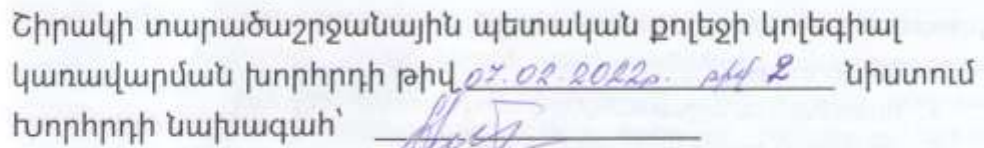 Շիրակի տարածաշրջանային պետական քոլեջի կոլեգիալ
կառավարման խորհրդի թիվ 07.02 2022թ. թիվ 2 նիստում
Խորհրդի նախագահ՝